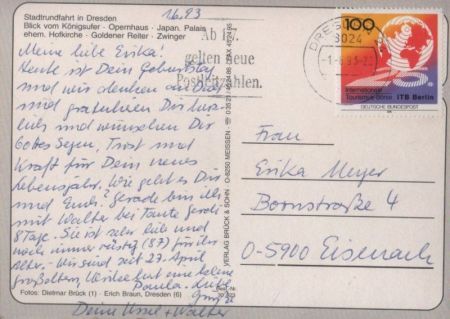 Stadtrundfahrt in Dresden
Blick vom Königsufer · Opernhaus · Japan. Palais
ehem. Hofkirche · Goldener Reiter · Zwinger
Meine liebe Erika!
Heute ist Dein Geburtstag
und wir denken an Dich
und gratulieren Dir herz-
lich und wünschen Dir
Gottes Segen, Trost und
Kraft für Dein neues
Lebensjahr. Wie geht es Dir
und Euch? Gerade bin ich
mit Walter bei Tante Gerdi
8 Tage. Sie ist sehr lieb und
noch immer rüstig (87) für ihr
Alter. Wir sind seit 27. April
Großeltern, hat eine kleine
Paula.
Deine + Walter
Fotos: Dietmar Brück (1) · Erich Braun, Dresden (6)
VERLAG BRÜCK & SOHN · O-8250 MEISSEN
1.6.93
Ab 1.
gelten neue
Postleitzahlen.
DRESDEN
8024
100
Internationale
Tourismus-Börse ITB Berlin
DEUTSCHE BUNDESPOST
Frau
Erika Meyer
Bornstraße 4
O-5900 Eisenach